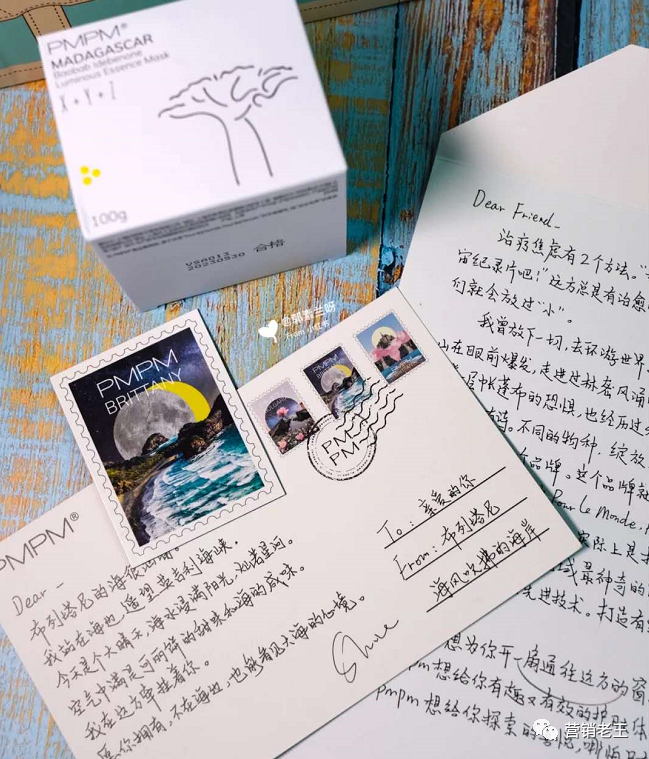 PMPM®
MADAGASCAR
Baobab Idebenone
Luminous Essence Mask
X+Y+Z
100g
VS6013
20230530 合格
PMPM
BRITTANY
PMPM
PM-P
To：亲爱的你
From：布列塔尼
海风吹拂的海岸
PMPM®
Dear_
布列塔尼的海很
我站在海边，遥望英吉利海峡.
今天是个大晴天，海水浸满阳光，灿若星河。
空气中满是可丽饼的甜味和海的咸味。
我在这方牵挂着你。
愿你拥有，不在海边，也能看见大海的心境。
Dear Friend_
治疗焦虑有2个方法。“
宙纪录片吧！”远方总是有治愈
们就会放过“小”。
我曾放下一切，去环游世界.
在眼前爆发，走进过林奔风涌
帐篷布的恐惧，也经历过
不同的物种，绽放
个品牌。这个品牌就
Pour Le Monde.
实际上是
最神奇的
先进技术。打造有
想为你开一扇通往远方的窗
pm想给你有趣又有效的护肤体
pmpm想给你探索的
营销老王